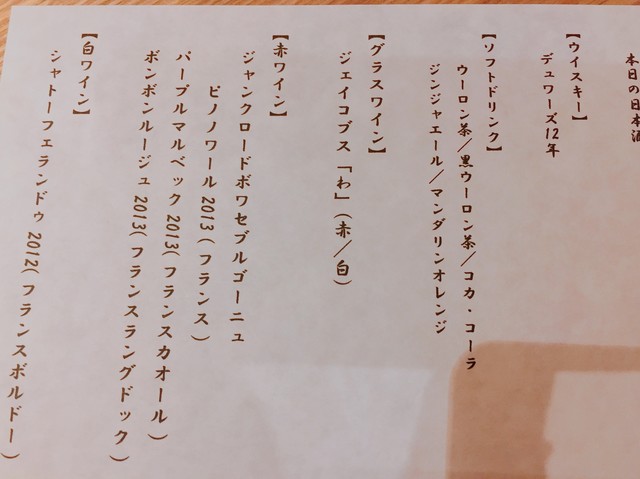 本日の日本酒
【ウイスキー】
デュワーズ12年
【ソフトドリンク】
ウーロン茶／黒ウーロン茶／コカ・コーラ
ジンジャエール／マンダリンオレンジ
【グラスワイン】
ジェイコブス「わ」(赤／白)
【赤ワイン】
ジャンクロードボワセブルゴーニュ
ピノノワール 2013 (フランス)
パープルマルベック 2013(フランスカオール)
ボンボンルージュ 2013(フランスラングドック)
【白ワイン】
シャトーフェランドゥ 2012(フランスボルドー)